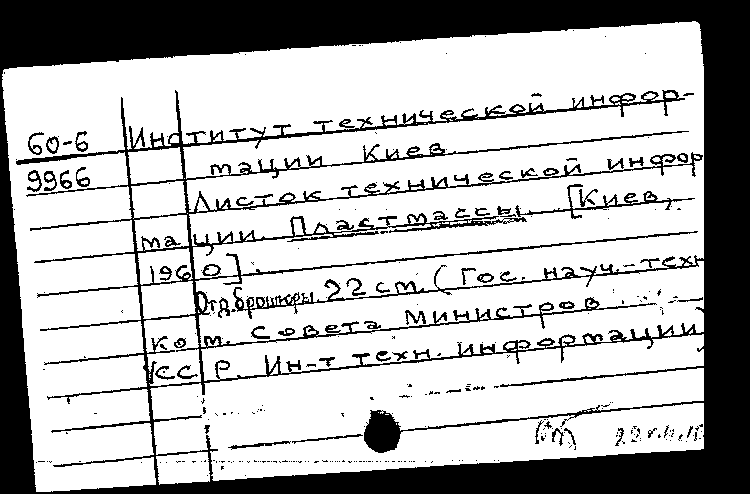 60-6 Институт технической инфор-
9966 мации Киев.
Листок технической инфор
мации. Пластмассы. [Киев,
1960].
Отд. брошюры. 22 cm. (Гос. науч.-техн
ком. Совета Министров
УССР. Ин-т техн. информации)